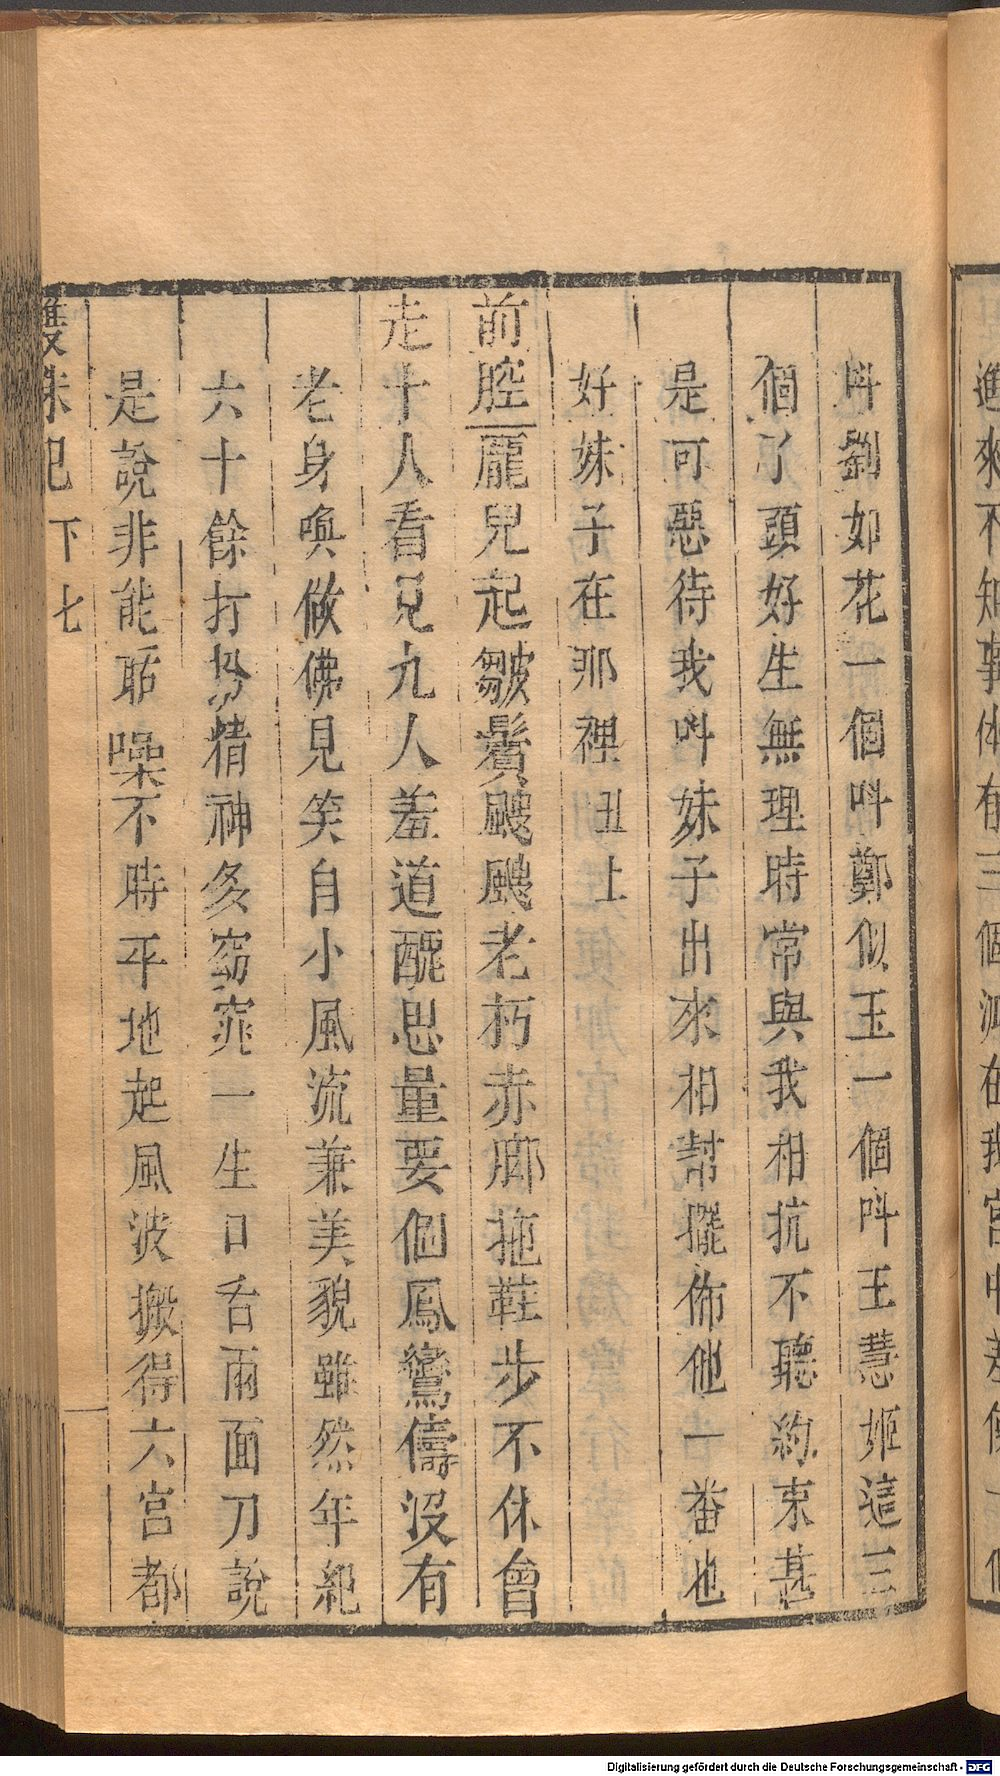 叫劉如花一個叫鄭似玉一個叫王慧姬這三
個丫頭好生無理時常與我相抗不聽約束甚
是可惡待我叫妹子出來相幫擺佈他一番也
好妹子在那裡 丑上
前腔 龐兒起皺鬢颼颼老朽赤脚拖鞋步不休曾
走十人看見九人羞道醜思量要個鳳鸞儔沒有
老身喚做佛見笑自小風流兼美貌雖然年紀
六十餘打扮精神多窈窕一生口舌兩面刀說
是說非能聒噪不時平地起風波搬得六宮都
雙珠記 下 七
進來不知事体有三個
在我宮中
Digitalisierung gefördert durch die Deutsche Forschungsgemeinschaft - DFG